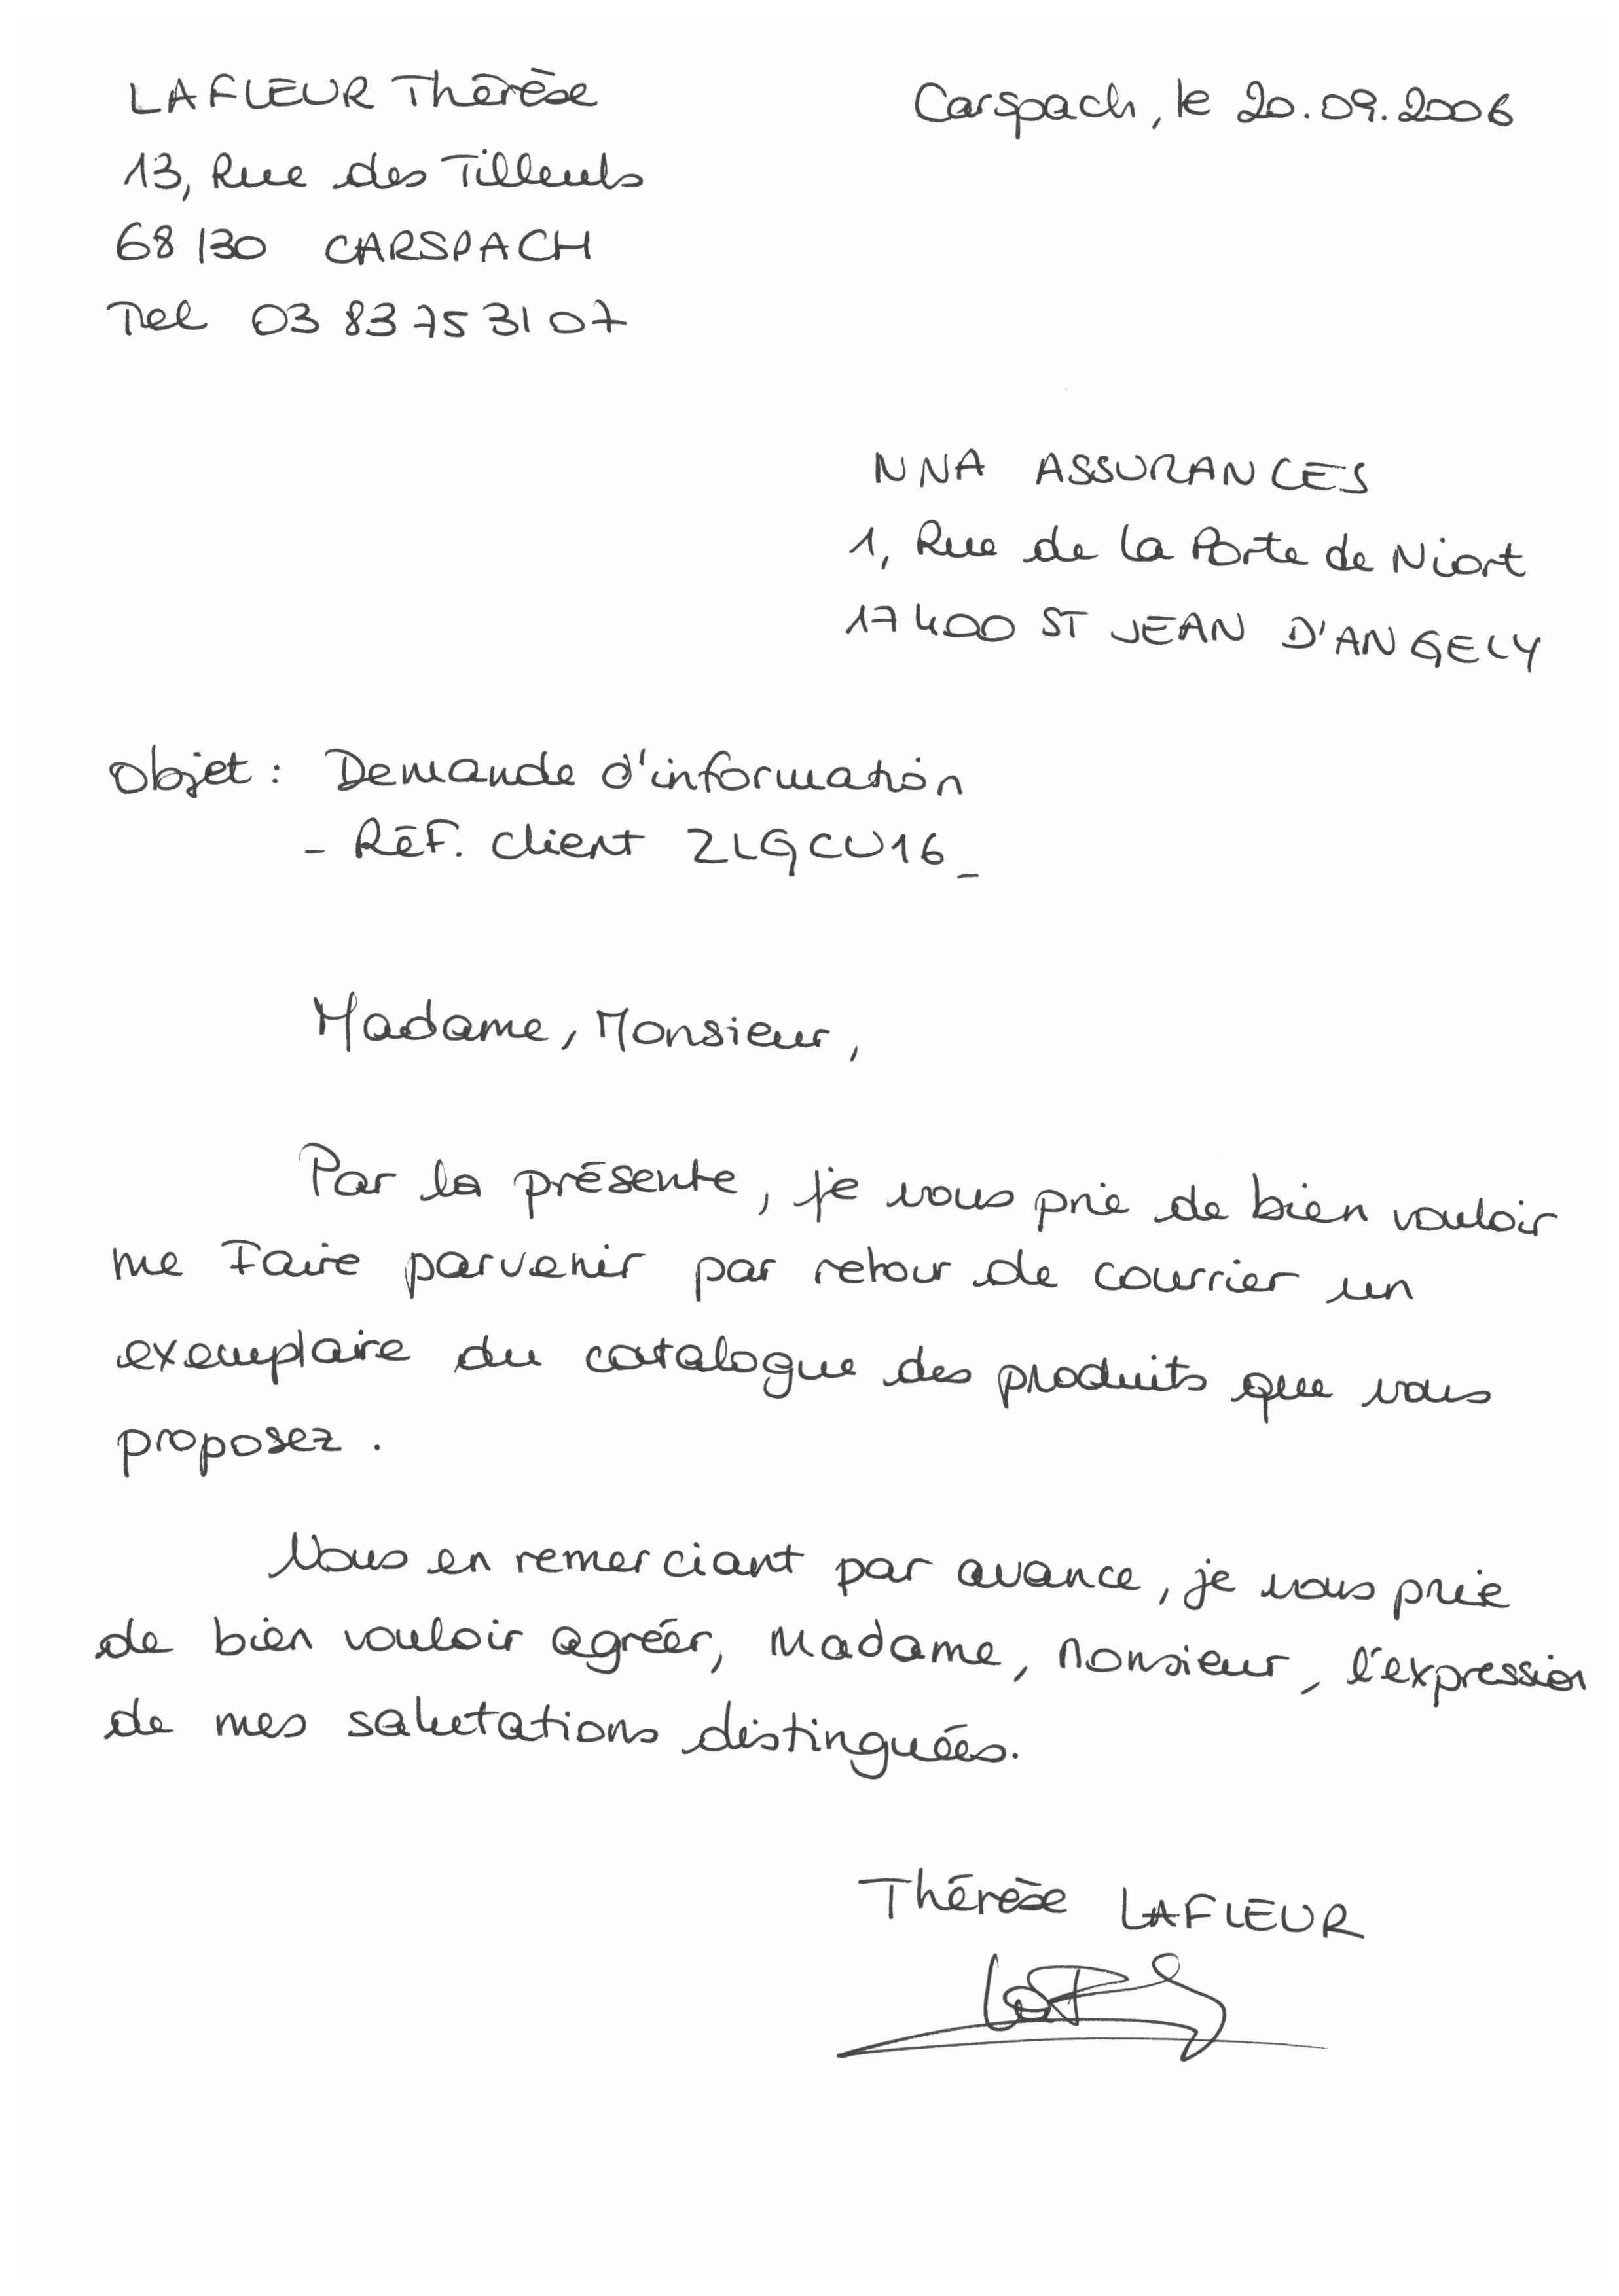 LAFLEUR Thérèse
Carspach, le 20.09.2006
13, Rue des Tilleuls
68130 CARSPACH
Tel 03 83 75 31 07
NNA ASSURANCES
1, Rue de la Porte de Niort
17400 ST JEAN D'ANGELY
Objet : Demande d'information
- Réf. client ZLGCU16_
Madame, Monsieur,
Par la présente, je vous prie de bien vouloir
me faire parvenir par retour de courrier un
exemplaire du catalogue des produits que vous
proposez.
Vous en remerciant par avance, je vous prie
de bien vouloir agréer, Madame, Monsieur, l'expression
de mes salutations distinguées.
Thérèse LAFLEUR